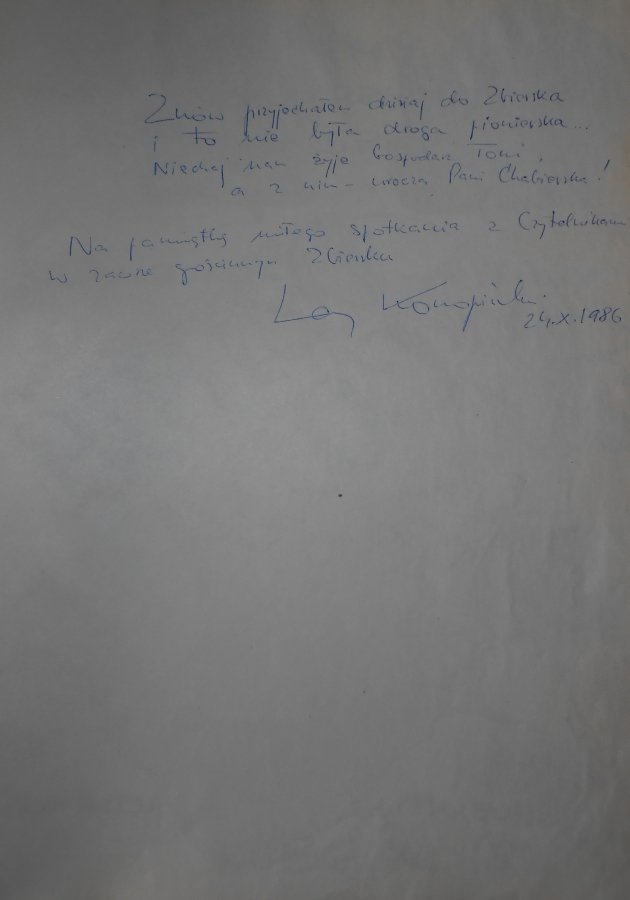 Znów przyjechałem dzisiaj do Zbierska
i to nie była droga pionierska...
Niechaj nam żyje Gospodarz Tomi,
a z nim - urocza Pani Chabierska!
Na pamiątkę miłego spotkania z Czytelnikami
w zawsze gościnnym Zbiersku
Lech Konopiński
24.X.1986